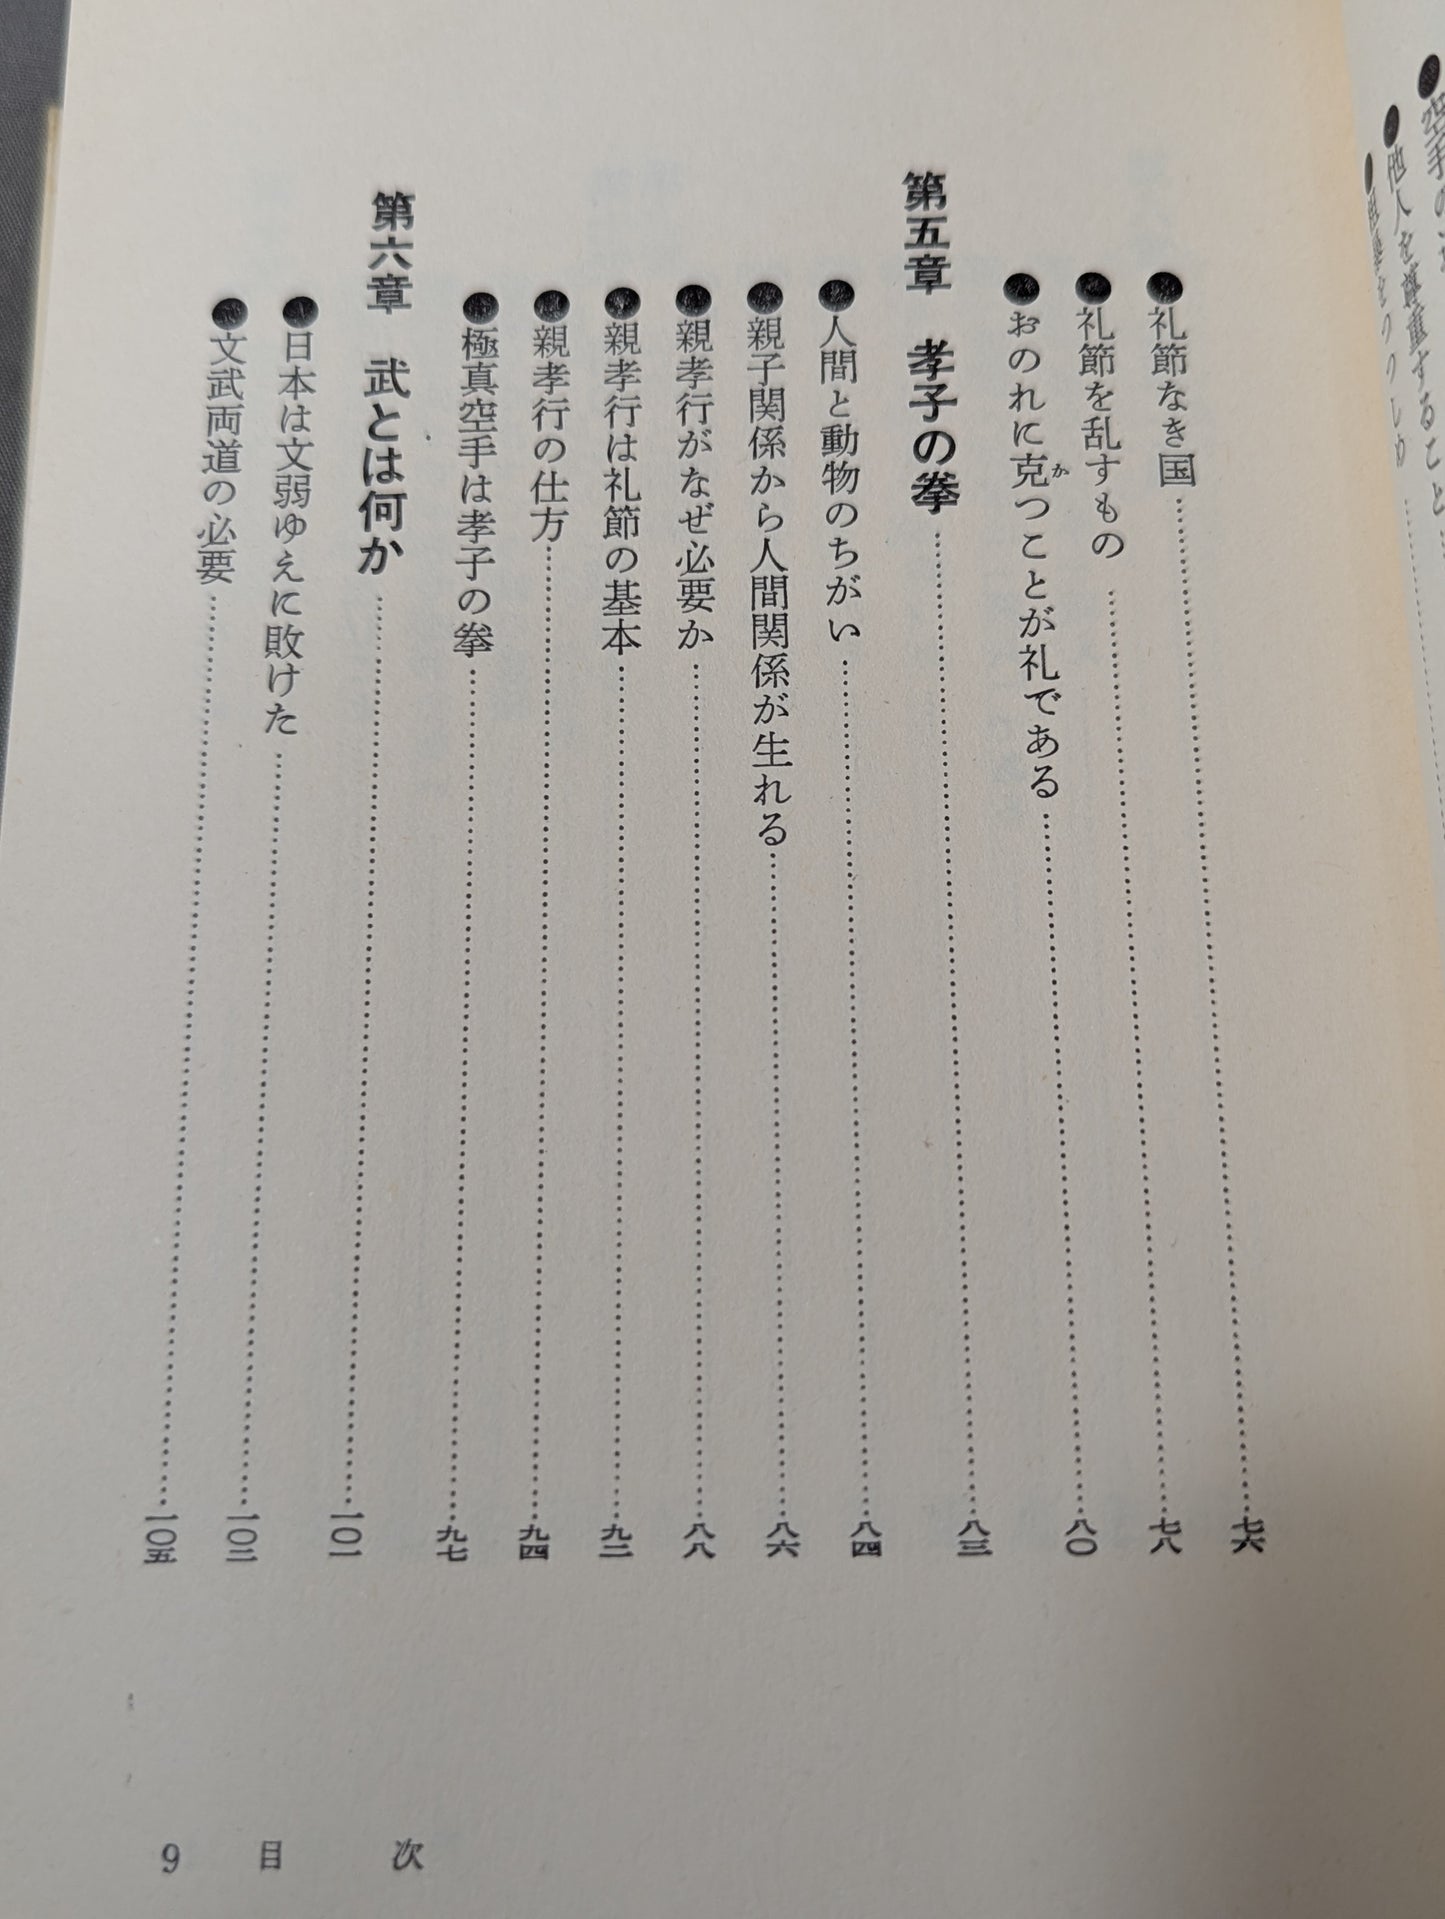 ●空手の
●他人を尊重すること
をつつしめ
●礼節なき国…………七六
●礼節を乱すもの…………七八
●おのれに克つことが礼である…………八〇
か
第五章　孝子の拳…………八三
●人間と動物のちがい…………八四
●親子関係から人間関係が生れる…………八六
●親孝行がなぜ必要か…………八八
●親孝行は礼節の基本…………九二
●親孝行の仕方…………九四
●極真空手は孝子の拳…………九七
第六章　武とは何か…………一〇一
●日本は文弱ゆえに敗けた…………一〇二
●文武両道の必要…………一〇五
9　目　次